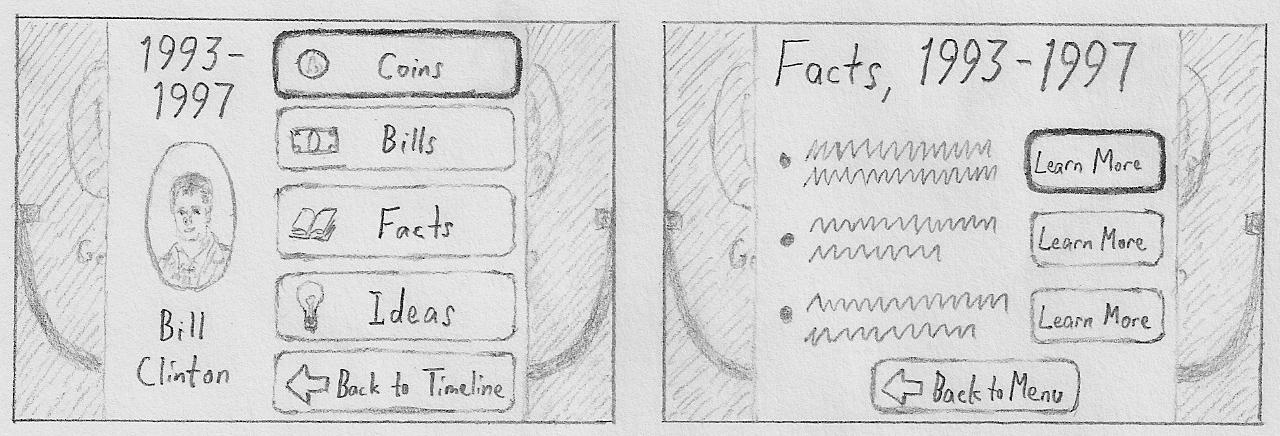 1993-
1997
Bill
Clinton
Coins
Bills
Facts
Ideas
Back to Timeline
Facts, 1993-1997
Learn More
Learn More
Learn More
Back to Menu